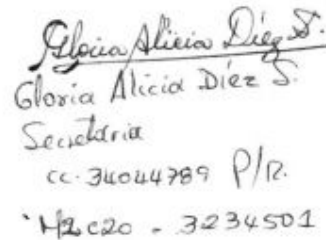 Gloria Alicia Díez S.
Gloria Alicia Díez S.
Secretaria
cc. 34044789 P/R.
3234501